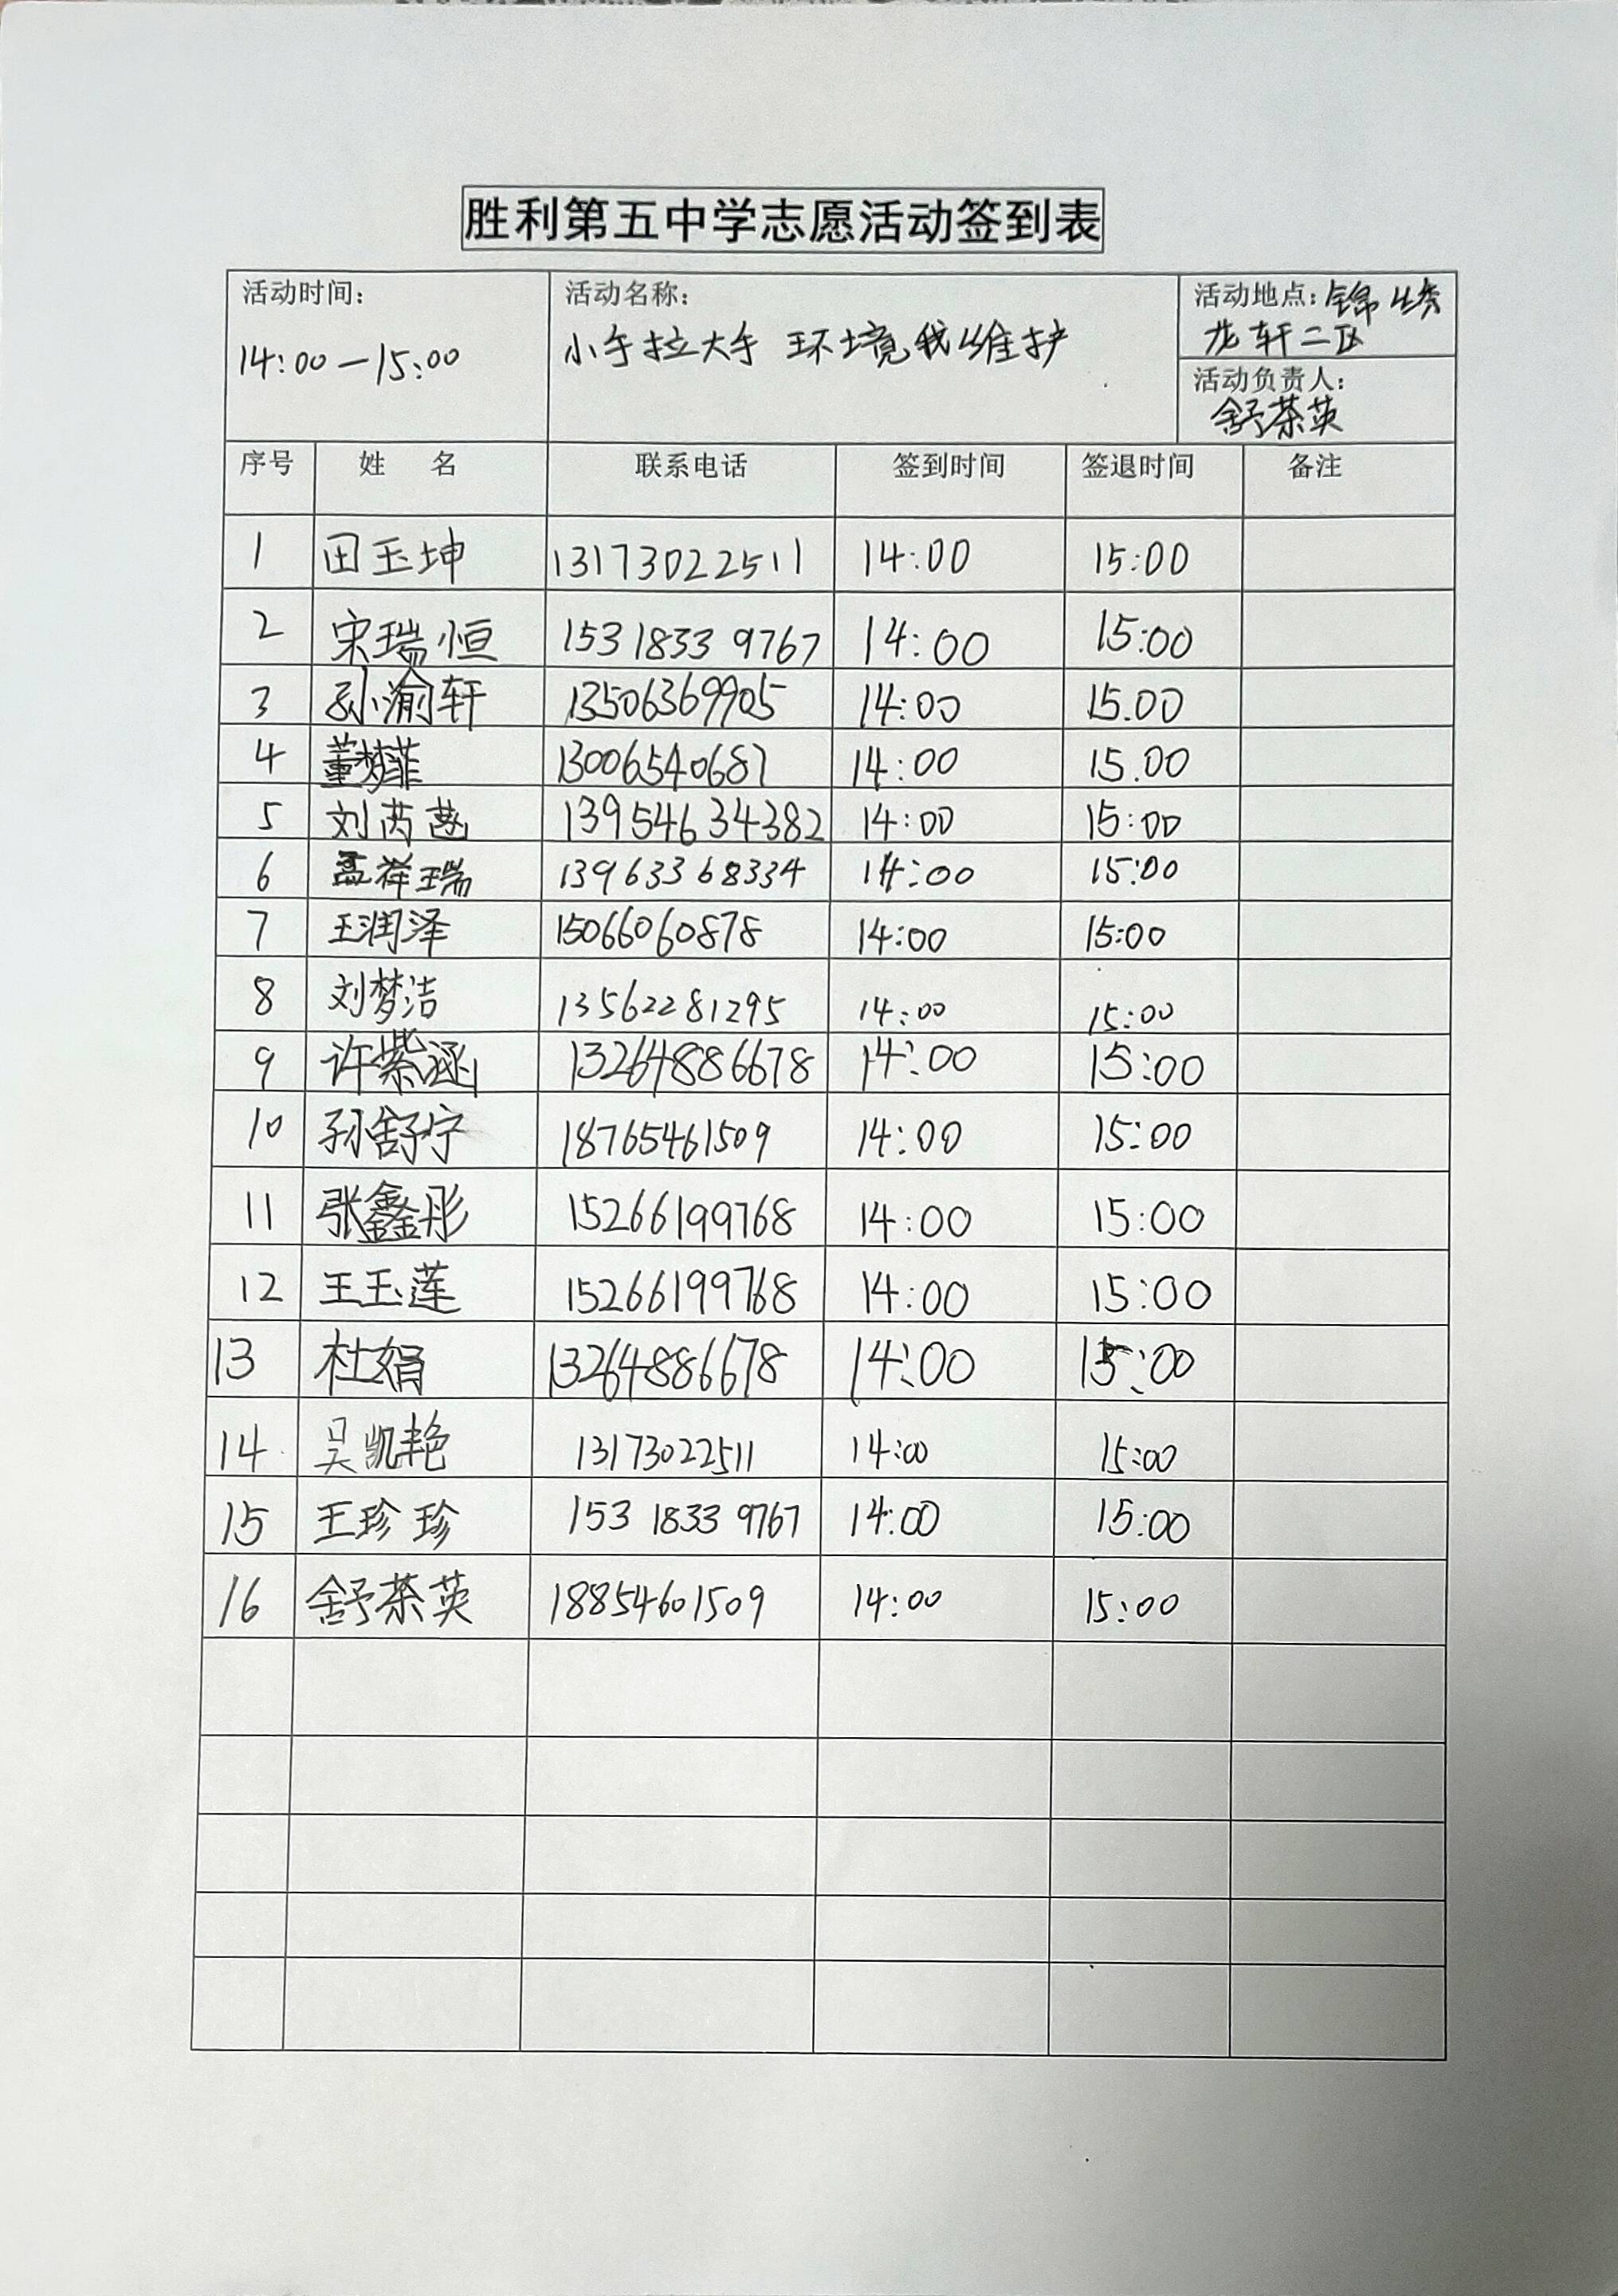 胜利第五中学志愿活动签到表
活动时间： 活动名称： 活动地点：锦绣
14:00—15:00 小手拉大手 环境我维护 龙轩二区
活动负责人：
舒茶英
序号 姓 名 联系电话 签到时间 签退时间 备注
1 田玉坤 13173022511 14:00 15:00
2 宋瑞恒 153 1833 9767 14:00 15:00
3 孙渝轩 13506369905 14:00 15.00
4 董梦菲 13006540687 14:00 15.00
5 刘芮菡 139546 34382 14:00 15:00
6 孟祥瑞 13963368334 14:00 15:00
7 王润泽 15066060878 14:00 15:00
8 刘梦洁 13562281295 14:00 15:00
9 许紫涵 13264886678 14:00 15:00
10 孙舒宁 18765461509 14:00 15:00
11 张鑫彤 15266199768 14:00 15:00
12 王玉莲 15266199768 14:00 15:00
13 杜娟 13264886678 14:00 15:00
14 吴凯艳 13173022511 14:00 15:00
15 王珍珍 153 1833 9767 14:00 15:00
16 舒茶英 18854601509 14:00 15:00